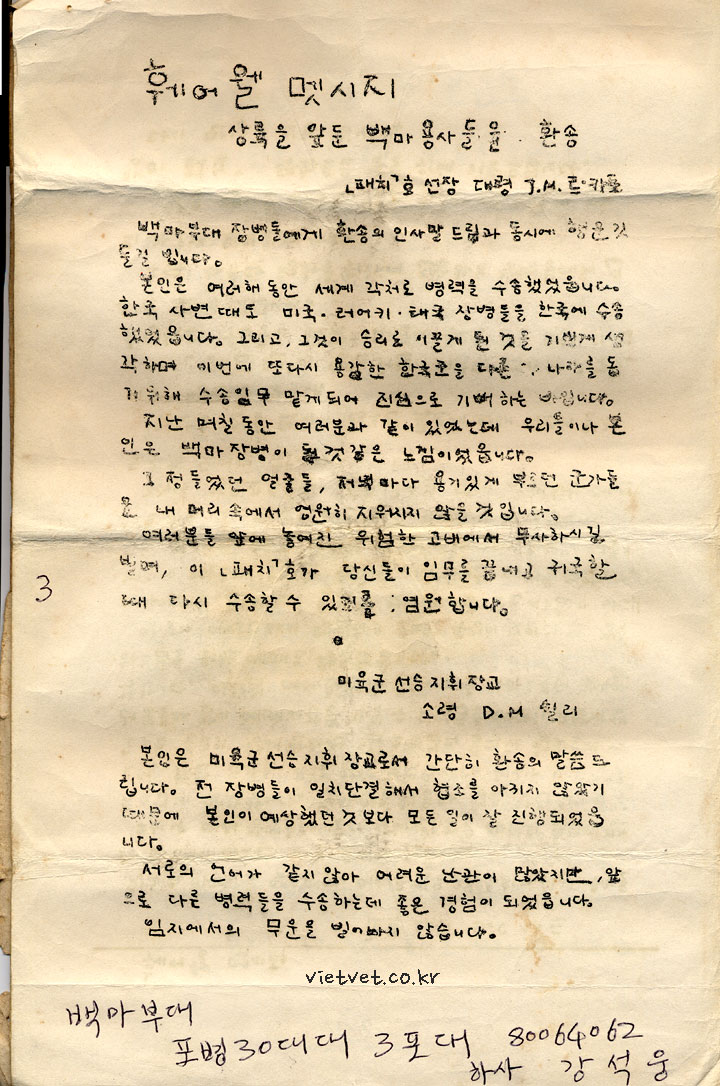 훼어웰 멧시지
상륙을 앞둔 백마용사들을 환송
「패치」호 선장 대령 J.M.
백마부대 장병들에게 환송의 인사말 드림과 동시에 행운것
들길 빕니다。
본인은 여러해 동안 세계 각처로 병력을 수송했었읍니다。
한국 사변때도 미국·러어키·태국 장병들을 한국에 수송
했었읍니다。 그리고, 그것이 승리로 이끌게 된 것을 기쁘게 생
각하며 이번에 또다시 용감한 한국군을 다른 나라를 돕
기위해 수송임무 맡게되어 진심으로 기뻐하는 바입니다。
지난 며칠동안 여러분과 같이 있었는데 우리들이나 본
인은 백마장병이 된것같은 느낌이었읍니다。
그 정들었던 얼굴들, 저녁마다 용기있게 부르던 군가들
은 내 머리속에서 영원히 지워지지 않을것입니다。
여러분들 앞에 놓여진 위험한 고비에서 무사하시길
빌며, 이 「패치」호가 당신들이 임무를 끝내고 귀국할
때 다시 수송할 수 있기를 염원합니다。
미육군 선승지휘장교
소령 D.M 릴리
본인은 미육군선승지휘장교로서 간단히 환송의 말씀드
립니다。 전 장병들이 일치단결해서 협조를 아끼지 않았기
때문에 본인이 예상했던 것보다 모든 일이 잘 진행되었읍
니다。
서로의 언어가 같지않아 어려운 난관이 많았지만, 앞
으로 다른 병력들을 수송하는데 좋은 경험이 되었읍니다。
임지에서의 무운을 빌어빠지 않습니다。
3
vietvet.co.kr
백마부대
포병30대대 3포대 80064062
하사 강석웅